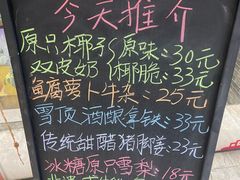 今天推介
原只椰子(原味)30元
双皮奶(椰脆)33元
鱼腐萝卜牛杂-25元
雪顶酒酿拿铁-33元
传统甜醋猪脚姜-23元
冰糖原只雪梨-18元